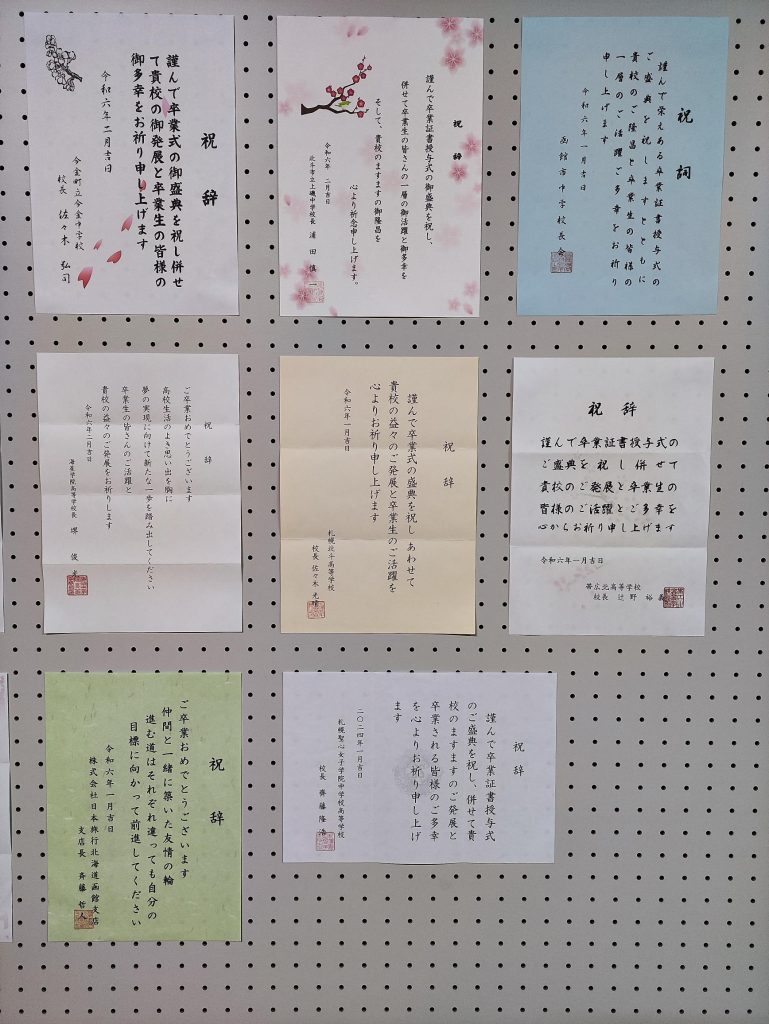 祝辞
謹んで卒業式の御盛典を祝し併せ
て貴校の御発展と卒業生の皆様の
御多幸をお祈り申し上げます
令和六年二月吉日
今金町立今金中学校
校長 佐々木 弘司
祝辞
謹んで卒業証書授与式の御盛典を祝し、
併せて卒業生の皆さんの一層の御活躍と御多幸を
そして、貴校のますますの御隆昌を
心より祈念申し上げます。
令和六年 二月吉日
北斗市立上磯中学校長 浦田 慎一
祝詞
謹んで栄えある卒業証書授与式の
ご盛典を祝しますとともに
貴校のご隆昌と卒業生の皆様の
一層のご活躍ご多幸をお祈り
申し上げます
令和六年一月吉日
函館市中学校長会
祝辞
ご卒業おめでとうございます
高校生活のよき思い出を胸に
夢の実現に向けて新たな一歩を踏み出してください
卒業生の皆さんのご活躍と
貴校の益々のご発展をお祈りします
令和六年二月吉日
海星学院高等学校長 堺 俊光
祝辞
謹んで卒業式の盛典を祝し あわせて
貴校の益々のご発展と卒業生のご活躍を
心よりお祈り申し上げます
令和六年一月吉日
札幌北斗高等学校
校長 佐々木 光晴
祝辞
謹んで卒業証書授与式の
ご盛典を祝し併せて
貴校のご発展と卒業生の
皆様のご活躍とご多幸を
心からお祈り申し上げます
令和六年一月吉日
帯広北高等学校
校長 辻野 裕
祝辞
ご卒業おめでとうございます
仲間と一緒に築いた友情の輪
進む道はそれぞれ違っても自分の
目標に向かって前進してください
令和六年一月吉日
株式会社日本旅行北海道函館支店
支店長 斉藤 哲人
祝辞
謹んで卒業証書授与式
のご盛典を祝し、併せて貴
校のますますのご発展と
卒業される皆様のご多幸
を心よりお祈り申し上げ
ます
二〇二四年一月吉日
札幌聖心女子学院中学校高等学校
校長 齊藤 隆浩